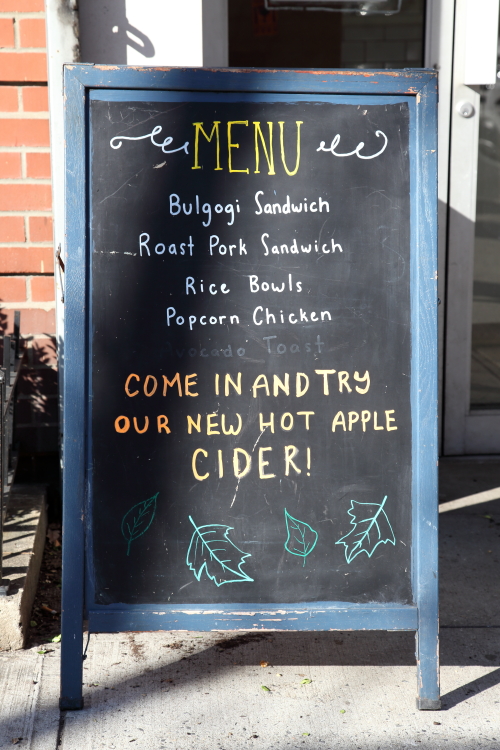 MENU
Bulgogi Sandwich
Roast Pork Sandwich
Rice Bowls
Popcorn Chicken
Avocado Toast
COME IN AND TRY
OUR NEW HOT APPLE
CIDER!